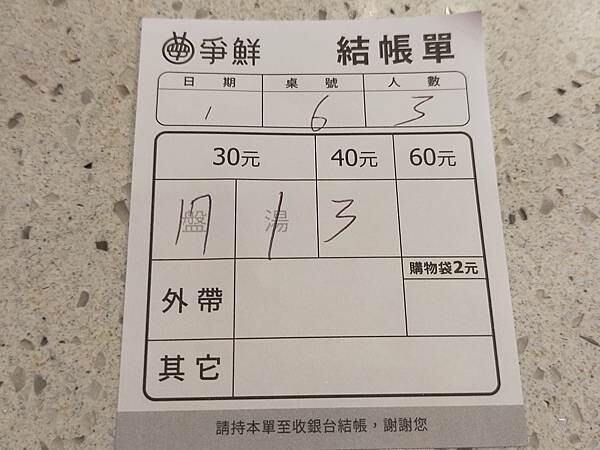 爭鮮 結帳單
日期 桌號 人數
1 6 3
30元 40元 60元
盤 湯
1 3
外帶 購物袋2元
其它
請持本單至收銀台結帳，謝謝您